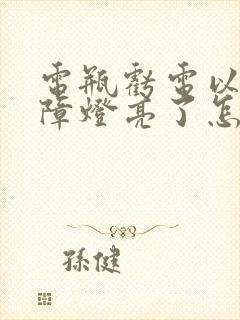 電瓶虧電以
障燈亮了怎
孫健